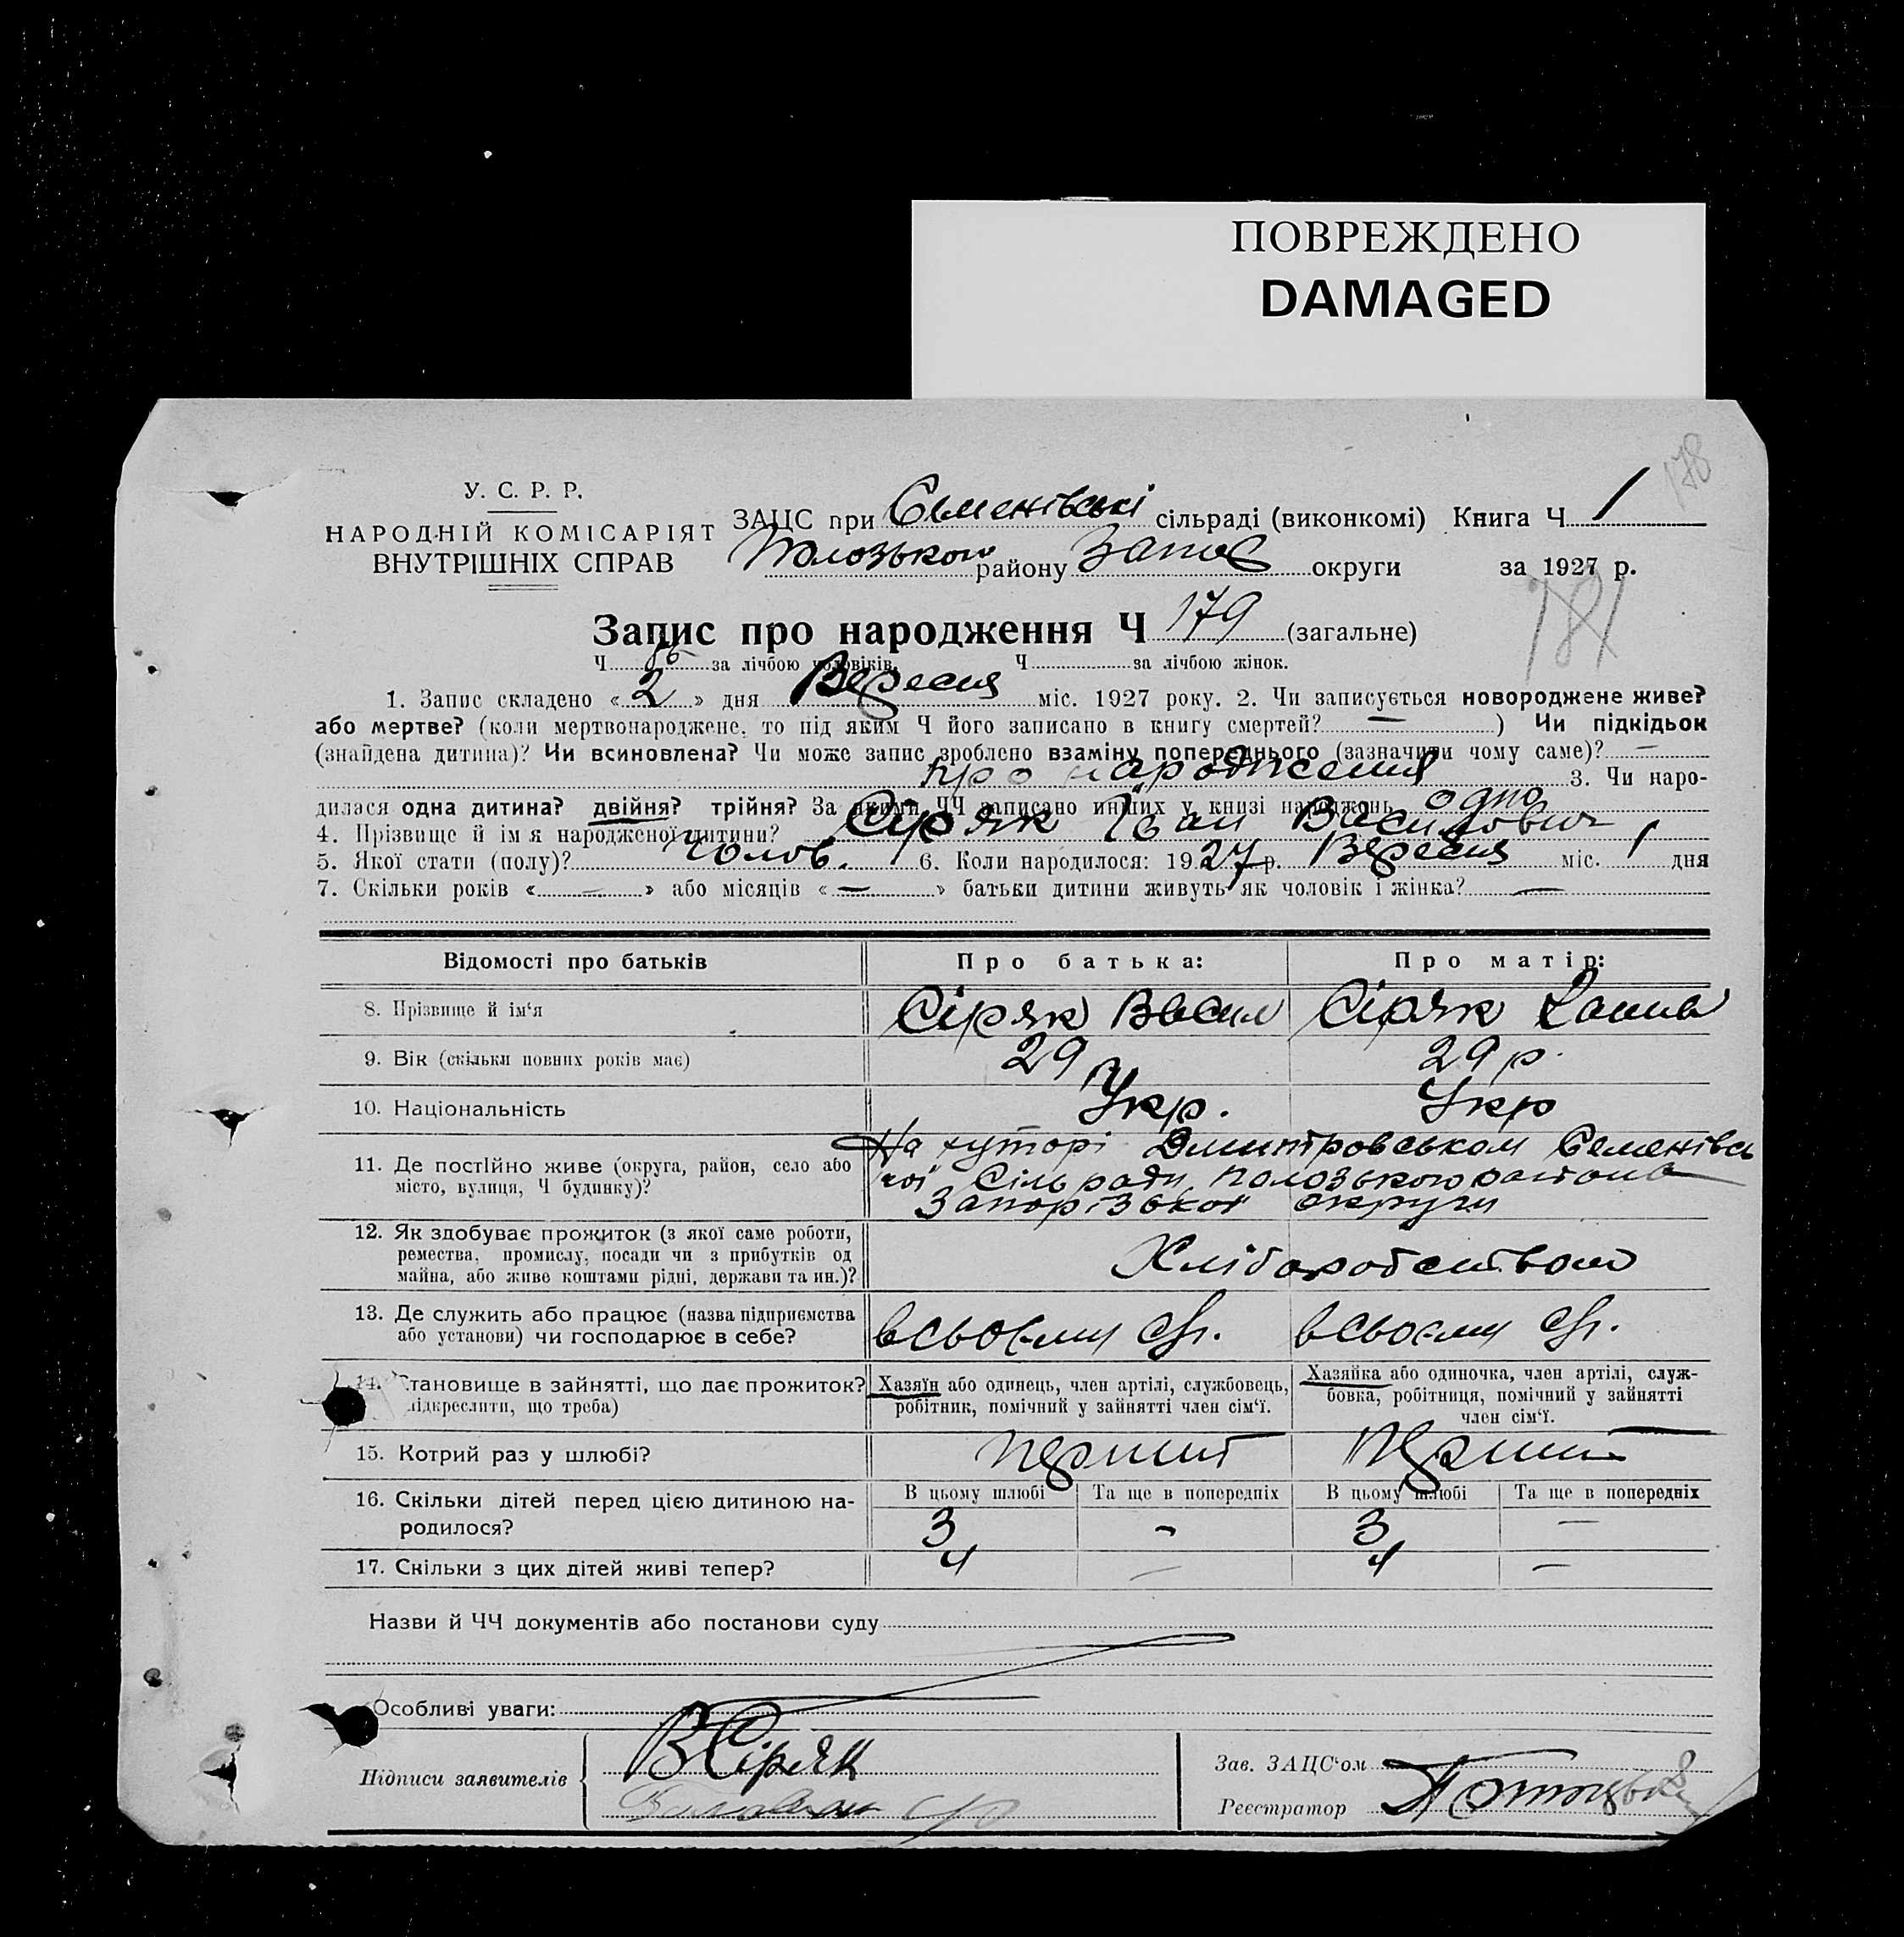 ПОВРЕЖДЕНО
DAMAGED
178
У. С. Р. Р.
НАРОДНІЙ КОМІСАРІЯТ
ВНУТРІШНІХ СПРАВ
ЗАЦС при Семенівські сільраді (виконкомі) Книга Ч 1
Полозького району Запор округи за 1927 р.
181
Запис про народження Ч 179 (загальне)
Ч. 86 за лічбою чоловіків. Ч. за лічбою жінок.
1. Запис складено « 2 » дня Вересня міс. 1927 року. 2. Чи записується новороджене живе?
або мертве? (коли мертвонароджене, то під яким Ч його записано в книгу смертей? — ) Чи підкідьок
(знайдена дитина)? Чи всиновлена? Чи може запис зроблено взаміну попереднього (зазначити чому саме)? —
про народження 3. Чи наро-
дилася одна дитина? двійня? трійня? За якими ЧЧ записано инших у книзі народжень одно
4. Прізвище й ім'я народженої дитини? Сіряк Іван Василович
5. Якої стати (полу)? Чолов. 6. Коли народилося: 1927 р. Вересня міс. 1 дня
7. Скільки років « — » або місяців « — » батьки дитини живуть як чоловік і жінка? —
Відомості про батьків Про батька: Про матір:
8. Прізвище й ім'я Сіряк Васил Сіряк Ганна
9. Вік (скільки повних років має) 29 29 р.
10. Національність Укр. Укр
11. Де постійно живе (округа, район, село або місто, вулиця, Ч будинку)?
На хуторі Дмитровськом Семенівсь
кої Сільради Полозького району
Запорізької округи
12. Як здобуває прожиток (з якої саме роботи,
ремества, промислу, посади чи з прибутків од
майна, або живе коштами рідні, держави та ин.)?
Хліборобством
13. Де служить або працює (назва підприємства
або установи) чи господарює в себе?
в своєму в своєму
14. Становище в зайнятті, що дає прожиток?
(підкреслити, що треба)
Хазяїн або одинець, член артілі, службовець,
робітник, помічний у зайнятті член сім'ї.
Хазяйка або одиночка, член артілі, служ-
бовка, робітниця, помічний у зайнятті
член сім'ї.
15. Котрий раз у шлюбі? перший перший
16. Скільки дітей перед цією дитиною на-
родилося?
В цьому шлюбі Та ще в попередніх В цьому шлюбі Та ще в попередніх
3 - 3 —
17. Скільки з цих дітей живі тепер? 4 — 4 —
Назви й ЧЧ документів або постанови суду
Особливі уваги:
Підписи заявителів
В Сіряк
Зав. ЗАЦС'ом
Реєстратор